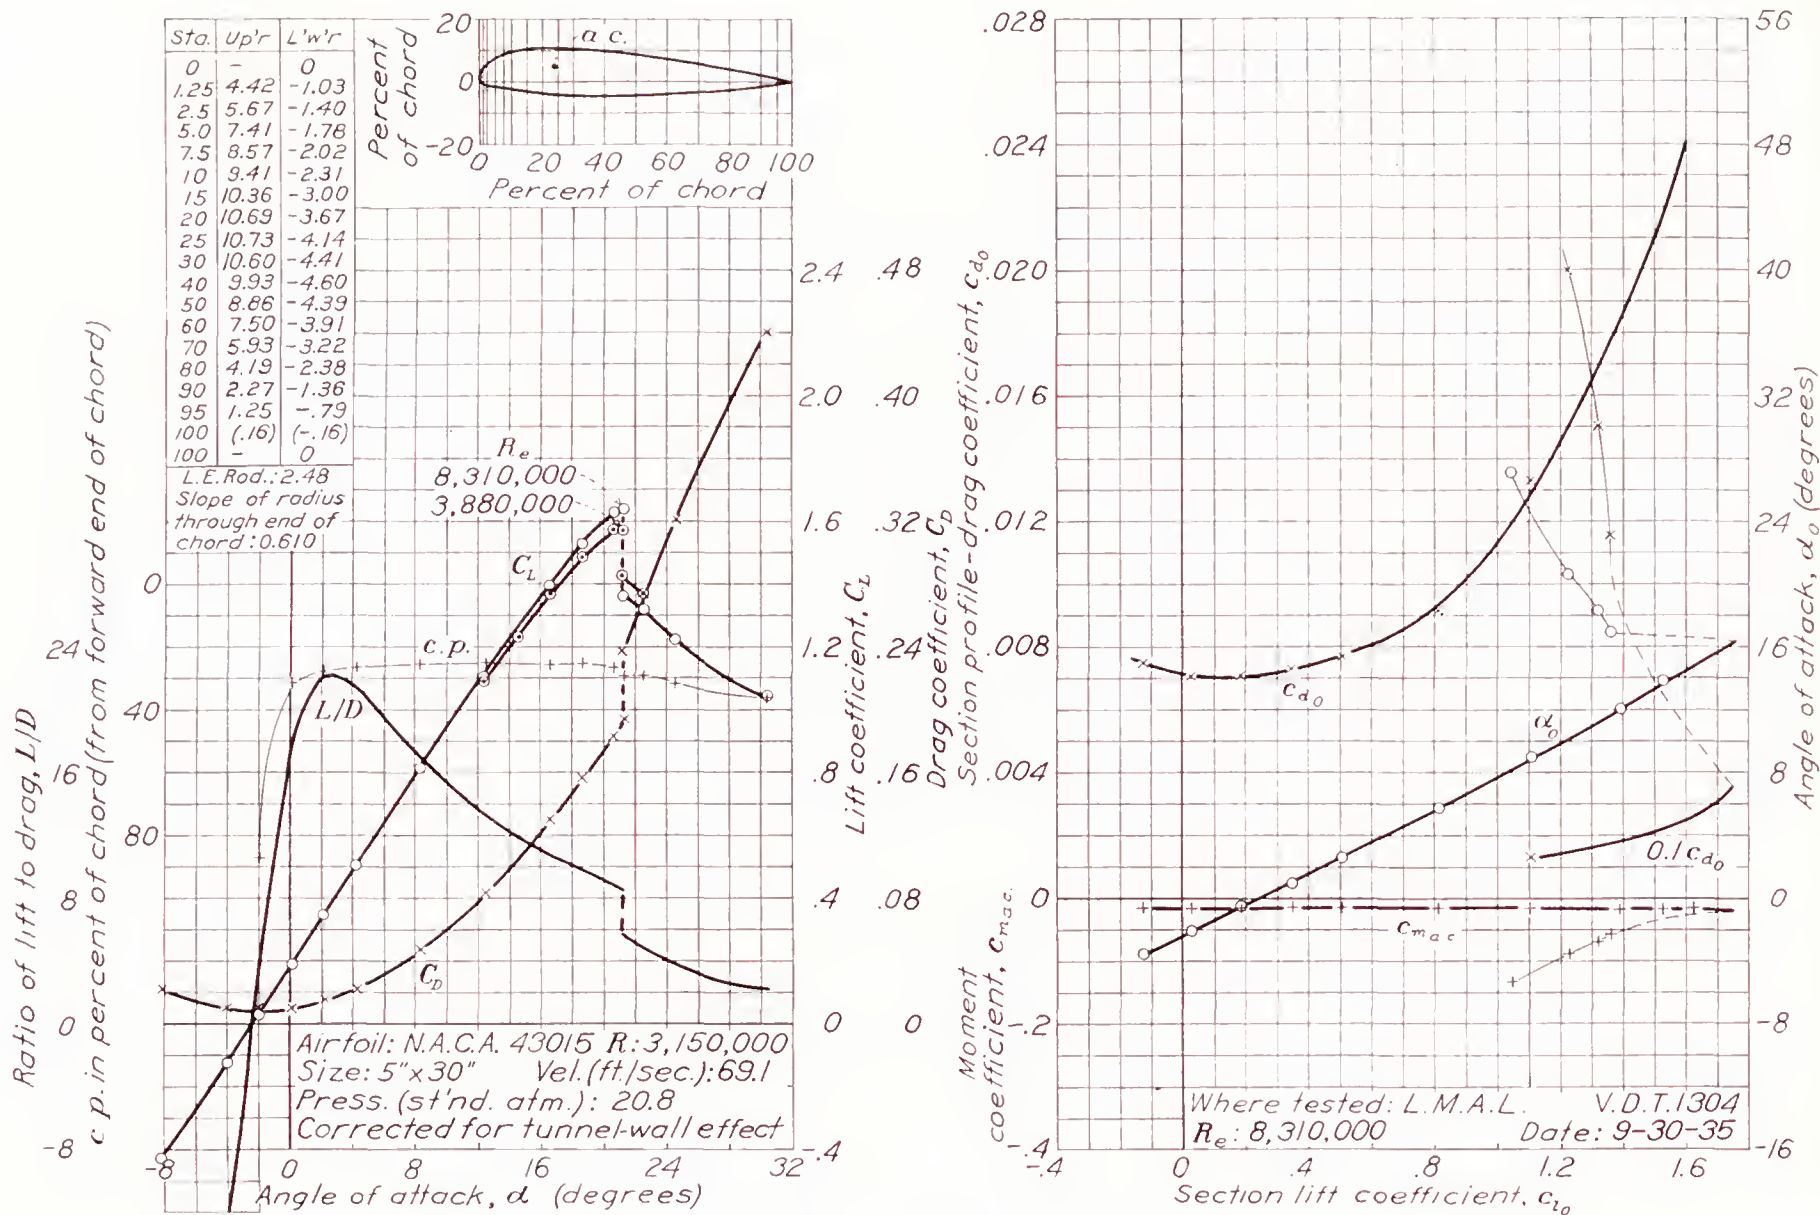 Sta. Up'r L'w'r
0 - 0
1.25 4.42 -1.03
2.5 5.67 -1.40
5.0 7.41 -1.78
7.5 8.57 -2.02
10 9.41 -2.31
15 10.36 -3.00
20 10.69 -3.67
25 10.73 -4.14
30 10.60 -4.41
40 9.93 -4.60
50 8.86 -4.39
60 7.50 -3.91
70 5.93 -3.22
80 4.19 -2.38
90 2.27 -1.36
95 1.25 -.79
100 (.16) (-.16)
100 - 0
L.E. Rad.: 2.48
Slope of radius
through end of
chord: 0.610
Percent
of chord
20
0
-20
a.c.
0 20 40 60 80 100
Percent of chord
Ratio of lift to drag, L/D
24
16
8
0
-8
c.p. in percent of chord (from forward end of chord)
0
40
80
Re
8,310,000
3,880,000
CL
c.p.
L/D
CD
2.4
2.0
1.6
1.2
.8
.4
0
-.4
Lift coefficient, CL
.48
.40
.32
.24
.16
.08
0
Drag coefficient, CD
Airfoil: N.A.C.A. 43015 R: 3,150,000
Size: 5"x30" Vel. (ft./sec.): 69.1
Press. (st'nd. atm.): 20.8
Corrected for tunnel-wall effect
-8 0 8 16 24 32
Angle of attack, α (degrees)
.028
.024
.020
.016
.012
.008
.004
0
Section profile-drag coefficient, cd0
-.2
-.4
Moment
coefficient, cm a.c.
56
48
40
32
24
16
8
0
-8
-16
Angle of attack, α0 (degrees)
cd0
α0
0.1 cd0
cm a c
Where tested: L.M.A.L. V.D.T. 1304
Re: 8,310,000 Date: 9-30-35
-.4 0 .4 .8 1.2 1.6
Section lift coefficient, cl0